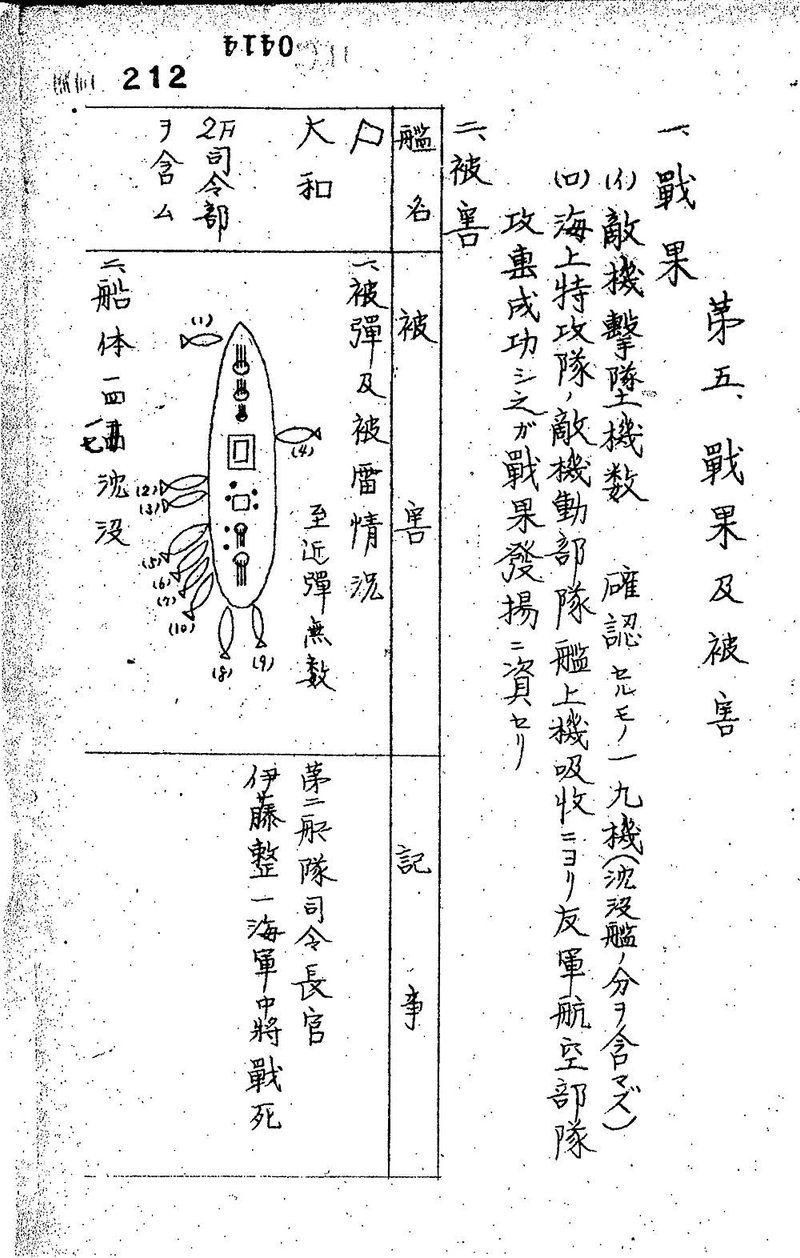 0414
212
第五、戰果及被害
一、戰果
(イ)敵機擊墜機数 確認セルモノ一九機(沈没艦ノ分ヲ含マズ)
(ロ)海上特攻隊ノ敵機動部隊艦上機吸收ニヨリ友軍航空部隊
攻撃成功シ之ガ戰果發揚ニ資セリ
二、被害
艦名
被害
記事
大和
2F司令部
ヲ含ム
一、被彈及被雷情況
至近彈無数
(1)
(4)
(2)
(3)
(5)
(6)
(7)
(10)
(8)
(9)
二、船体一四一七沈没
第二艦隊司令長官
伊藤整一海軍中將戰死